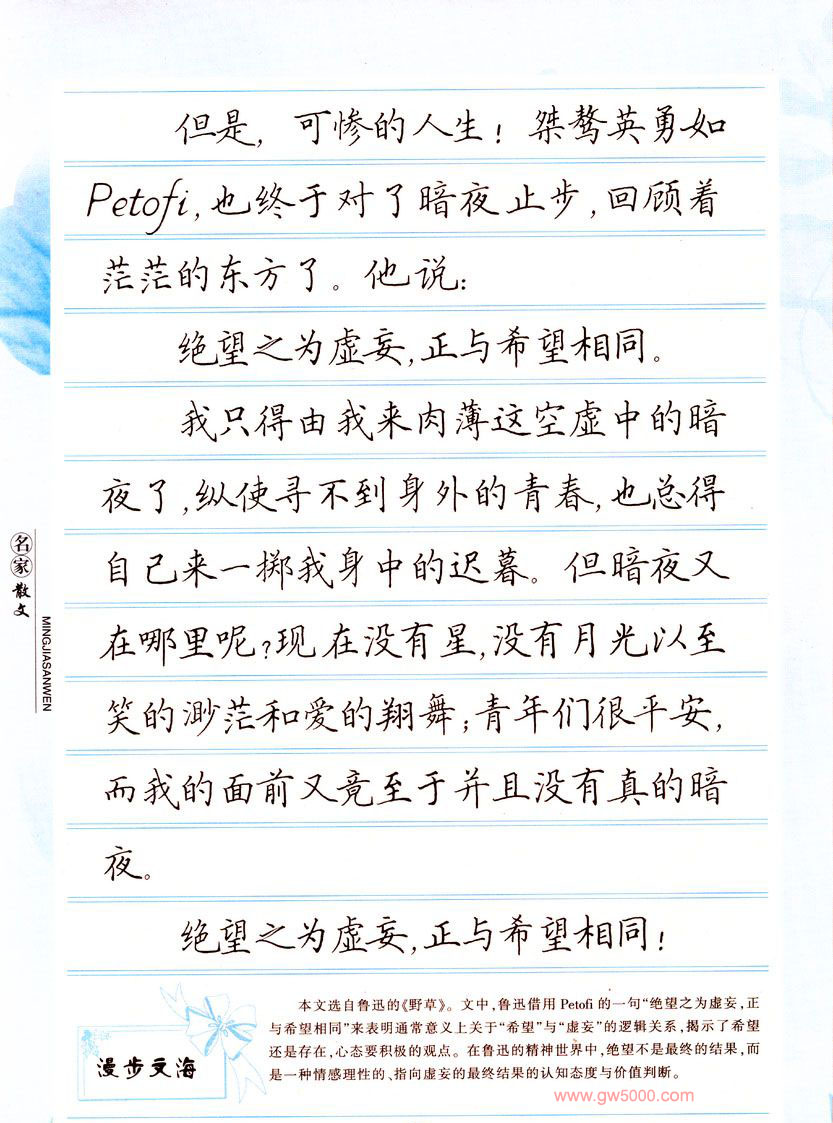 但是，可惨的人生！桀骜英勇如
Petofi，也终于对了暗夜止步，回顾着
茫茫的东方了。他说：
绝望之为虚妄，正与希望相同。
我只得由我来肉薄这空虚中的暗
夜了，纵使寻不到身外的青春，也总得
自己来一掷我身中的迟暮。但暗夜又
在哪里呢？现在没有星，没有月光以至
笑的渺茫和爱的翔舞；青年们很平安，
而我的面前又竟至于并且没有真的暗
夜。
绝望之为虚妄，正与希望相同！
名家散文
MINGJIASANWEN
漫步文海
本文选自鲁迅的《野草》。文中，鲁迅借用 Petofi 的一句“绝望之为虚妄，正
与希望相同”来表明通常意义上关于“希望”与“虚妄”的逻辑关系，揭示了希望
还是存在，心态要积极的观点。在鲁迅的精神世界中，绝望不是最终的结果，而
是一种情感理性的、指向虚妄的最终结果的认知态度与价值判断。
www.gw5000.com